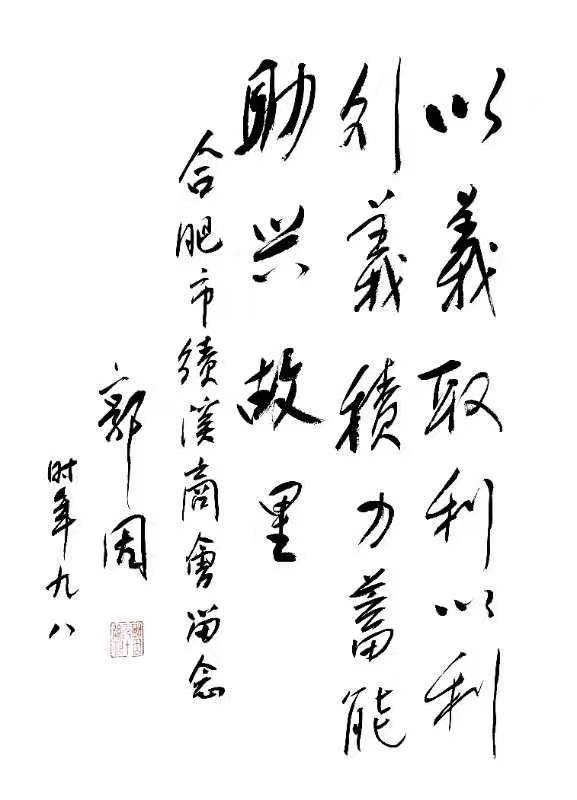 以義取利以利
義積力蓄能
助兴故里
合肥市績溪商會留念
郭因
时年九八